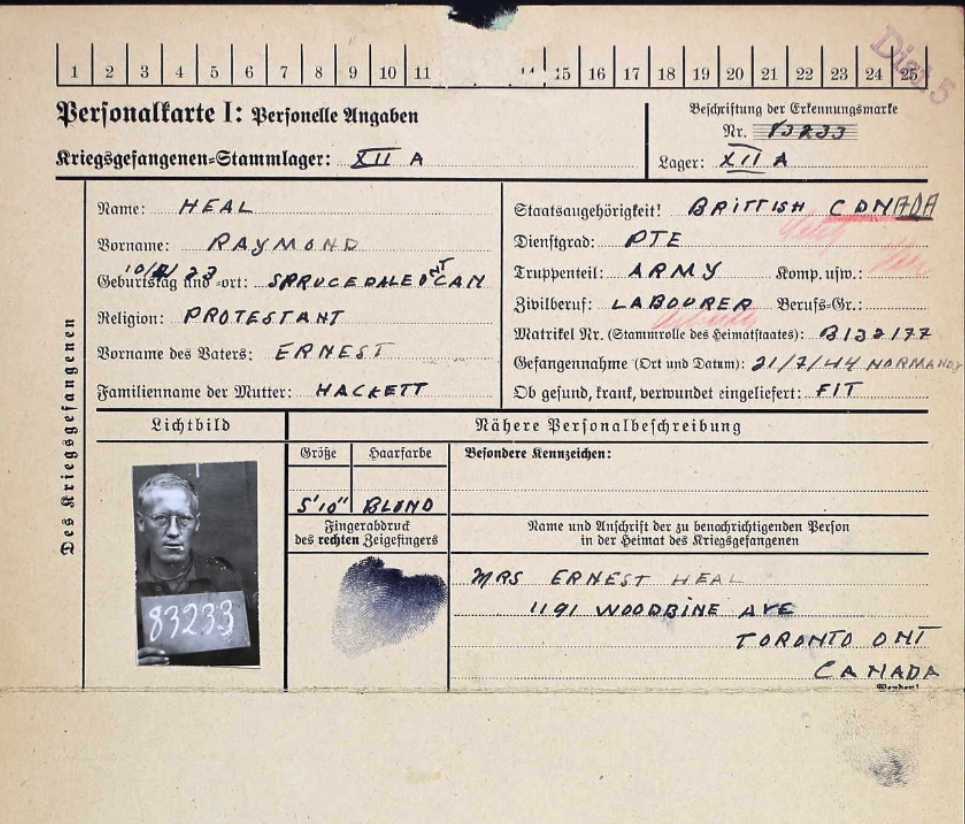 1 2 3 4 5 6 7 8 9 10 11 14 15 16 17 18 19 20 21 22 23 24 25
Personalkarte I: Personelle Angaben
Kriegsgefangenen-Stammlager: XII A
Beschriftung der Erkennungsmarke
Nr. 83233
Lager: XII A
Des Kriegsgefangenen
Name: HEAL
Vorname: RAYMOND
Geburtstag und -ort: SPRUCEDALE ONT CAN
Religion: PROTESTANT
Vorname des Vaters: ERNEST
Familienname der Mutter: HACKETT
Staatsangehörigkeit: BRITTISH CANADA
Dienstgrad: PTE
Truppenteil: ARMY Komp. usw.:
Zivilberuf: LABOURER Berufs-Gr.:
Matrikel Nr. (Stammrolle des Heimatstaates): B132177
Gefangennahme (Ort und Datum): 21/7/44 NORMANDY
Ob gesund, krank, verwundet eingeliefert: FIT
Lichtbild
Nähere Personalbeschreibung
Größe
Haarfarbe
Besondere Kennzeichen:
5'10" BLOND
Fingerabdruck
des rechten Zeigefingers
Name und Anschrift der zu benachrichtigenden Person
in der Heimat des Kriegsgefangenen
83233
MRS ERNEST HEAL
1191 WOODBINE AVE
TORONTO ONT
CANADA
Wenden!